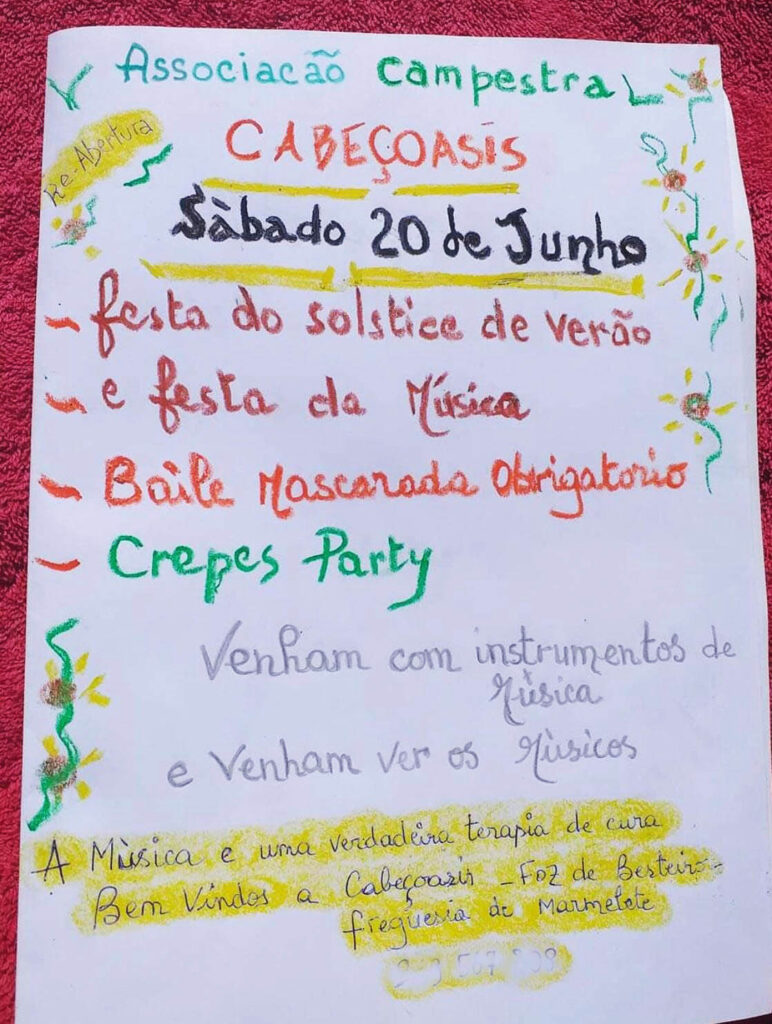 Associacão campestral
Re-Abertura
CABEÇOASIS
Sàbado 20 de Junho
- festa do solstice de verão
- e festa da Música
- Baile Mascarada Obrigatorio
- Crepes Party
Venham com instrumentos de
Mùsica
e Venham ver os Mùsicos
A Mùsica e uma verdadeira terapia de cura
Bem Vindos a Cabeçoazis - Foz de Besteiro -
freguesia de Marmelete